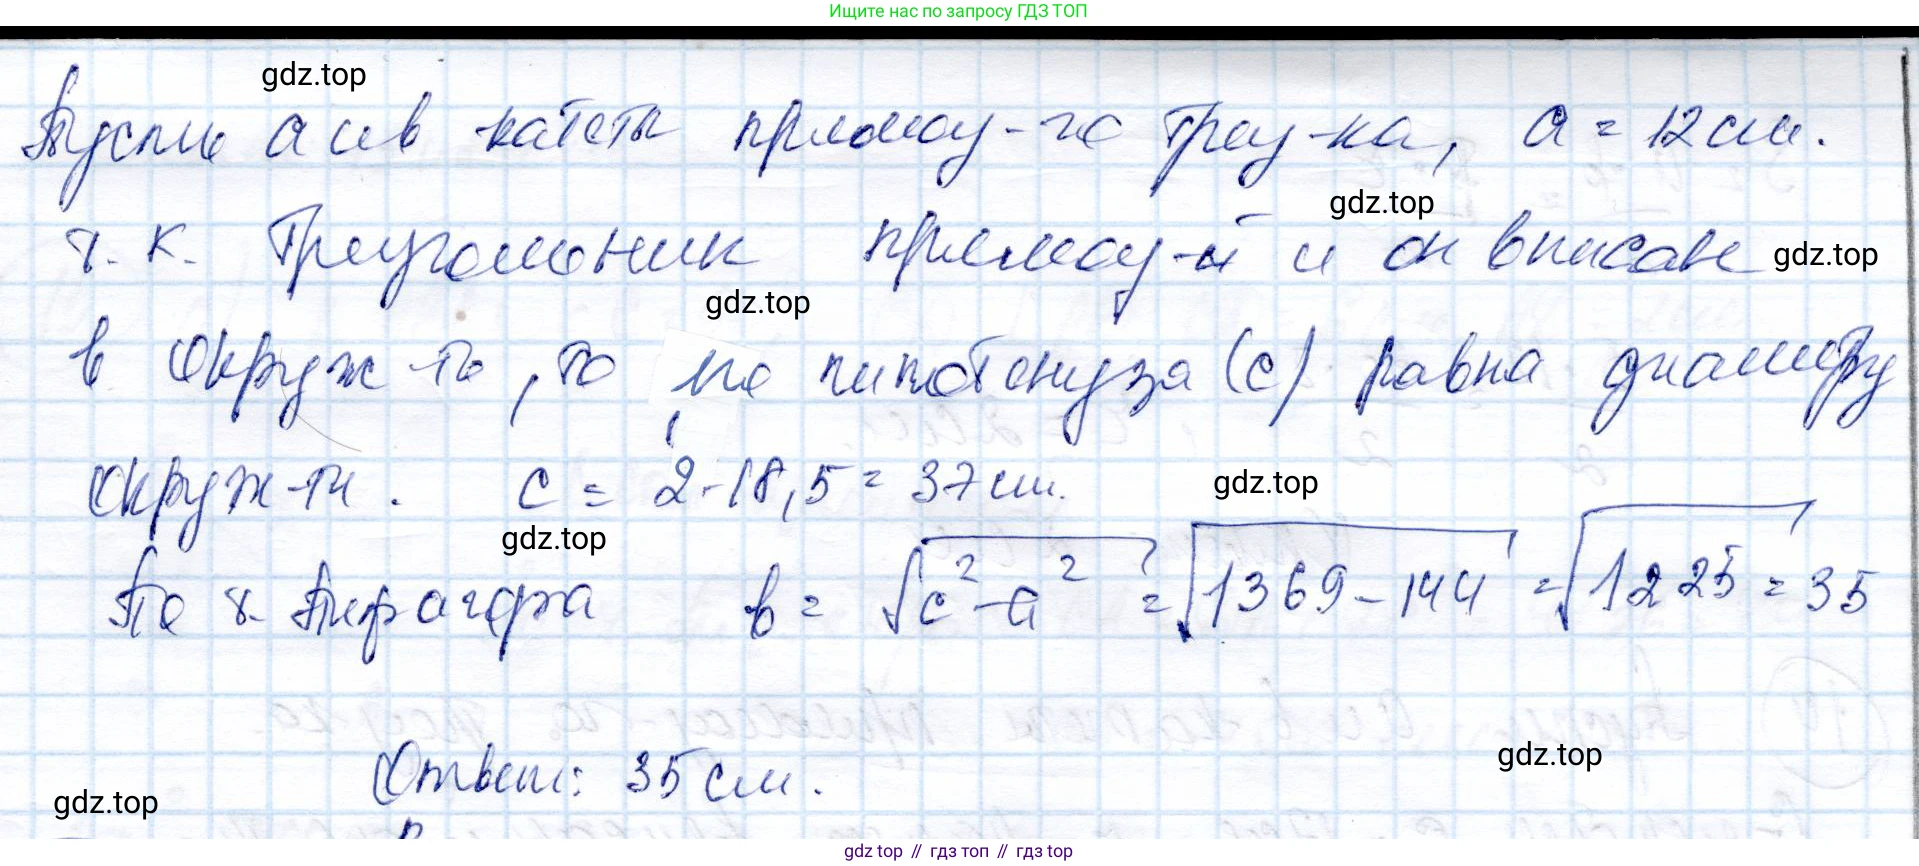 Ищите нас по запросу ГДЗ ТОП
gdz.top
Пусть а и в катеты прямоу-го треу-ка, а = 12 см.
gdz.top
т. к. треугольник прямоу-й и он вписан
gdz.top
gdz.top
в окруж-ть, то его гипотенуза (с) равна диаметру
окруж-ти. с = 2·18,5 = 37 см.
gdz.top
gdz.top
По т. Пифагора в = √c²-a² = √1369-144 = √1225 = 35
gdz.top
Ответ: 35 см.
gdz.top
gdz top // гдз топ // гдз top